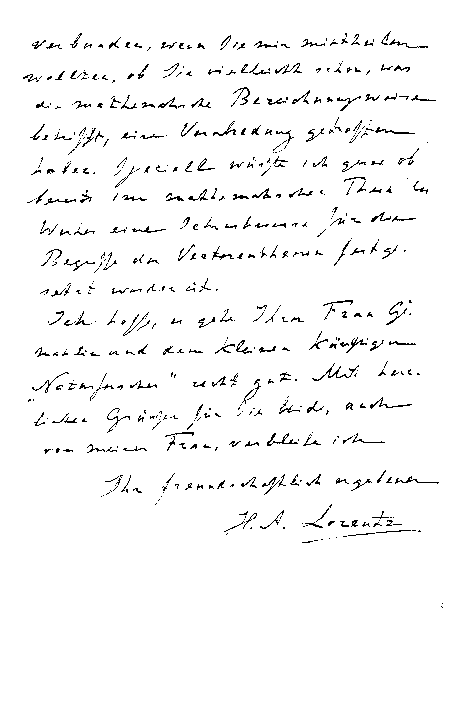 verbunden, wenn Sie mir mittheilen
wollten, ob Sie vielleicht schon, was
die mathematische Bezeichnungsweise
betrifft, eine Verabredung getroffen
haben. Speciell wüsste ich gerne ob
bereits im mathematischen Theil des
Werkes eine Schreibweise für die
Begriffe der Vectorentheorie festge-
setzt worden ist.
Ich hoffe, es gehe Ihrer Frau Ge-
mahlin und dem kleinen künftigen
„Naturforscher" recht gut. Mit herz-
lichen Grüssen für Sie beide, auch
von meiner Frau, verbleibe ich
Ihr freundschaftlich ergebener
H. A. Lorentz